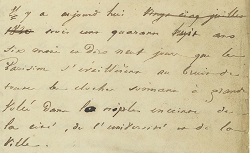 Il y a aujourd'hui vingt cinq juillet
trois cent quarante huit ans
six mois et dix neuf jours que les
Parisiens s'éveillèrent au bruit de
toutes les cloches sonnant à grande
volée dans la triple enceinte de
la cité, de l'université et de la
ville.